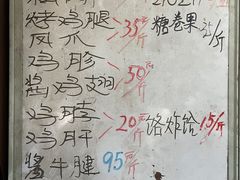 烤鸡腿
凤爪 35元/斤 糖卷果
鸡胗
酱鸡翅 30元/斤
鸡脖
鸡肝 20元/斤 咯炸饸 15/斤
酱牛腱 95元/斤